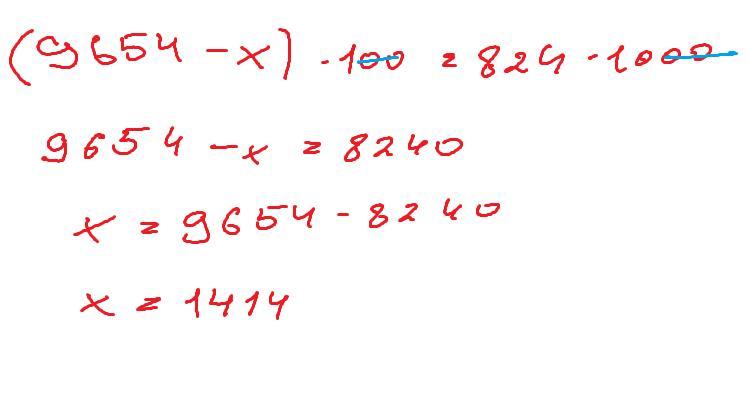 (9654 - x) · 100 = 824 · 1000
9654 - x = 8240
x = 9654 - 8240
x = 1414